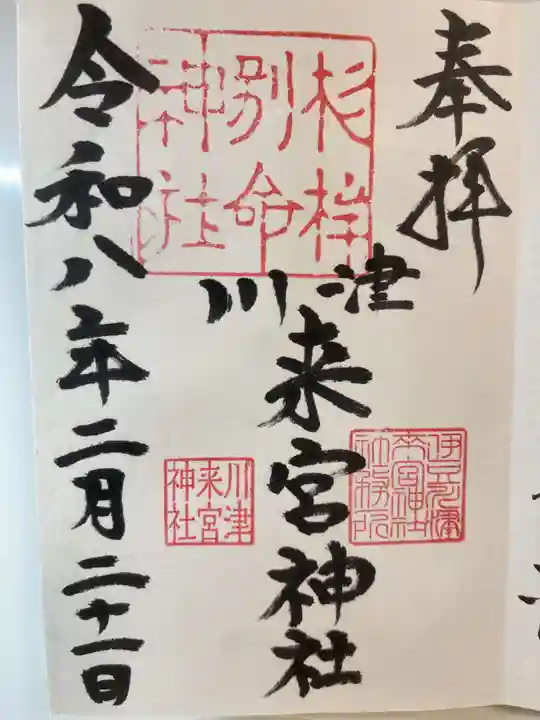 奉拝
杉桙
別命
神社
川津
来宮神社
来宮神社
社務所
川津
来宮
神社
令和八年二月二十一日